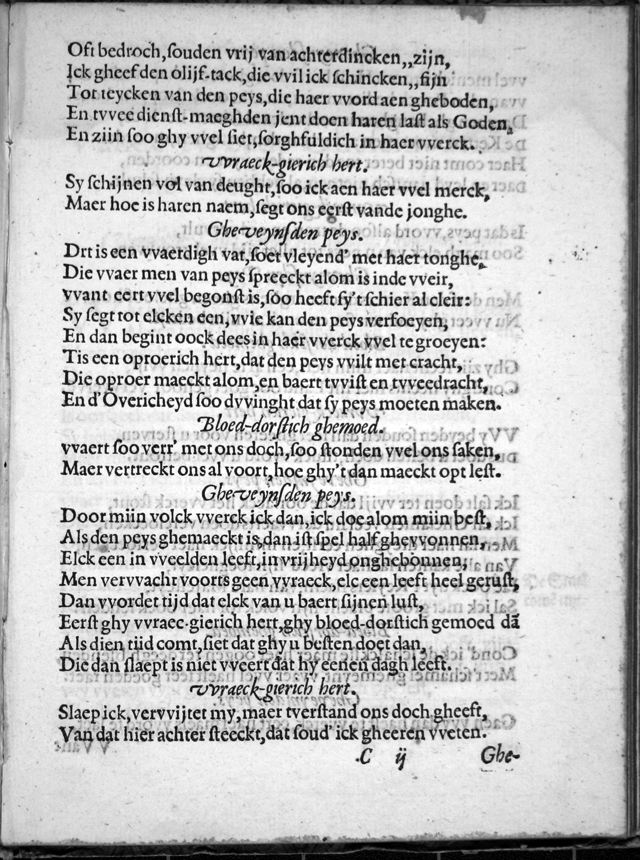 Oft bedroch, souden vrij van achterdincken,, zijn,
Ick gheef den olijf-tack, die vvil ick schincken,, fijn
Tot teycken van den peys, die haer vvord aen gheboden,
En tvvee dienst-maeghden jent doen haren last als Goden,
En zijn soo ghy vvel siet, sorghfuldich in haer vverck.
Vvraeck-gierich hert.
Sy schijnen vol van deught, soo ick aen haer vvel merck,
Maer hoe is haren naem, segt ons eerst vande jonghe.
Gheveynsden peys.
Drt is een vvaerdigh vat, soet vleyend' met haer tonghe,
Die vvaer men van peys spreeckt alom is inde vveir,
VVant eert vvel begonst is, soo heeft sy't schier al cleir:
Sy segt tot elcken een, vvie kan den peys verfoeyen,
En dan begint oock dees in haer vverck vvel te groeyen:
Tis een oproerich hert, dat den peys vvilt met cracht,
Die oproer maeckt alom, en baert tvvist en tvveedracht,
En d'Overicheyd soo dvvinght dat sy peys moeten maken.
Bloed-dorstich ghemoed.
VVaert soo verr' met ons doch, soo stonden vvel ons saken,
Maer vertreckt ons al voort, hoe ghy't dan maeckt opt lest.
Gheveynsden peys.
Door miin volck vverck ick dan, ick doe alom miin best,
Als den peys ghemaeckt is, dan ist spel half ghevvonnen,
Elck een in vveelden leeft, in vrijheyd onghebonnen,
Men vervvacht voorts geen vvraeck, elc een leeft heel gerust,
Dan vvordet tijd dat elck van u baert sijnen lust,
Eerst ghy vvraec-gierich hert, ghy bloed-dorstich gemoed dā
Als dien tijd comt, siet dat ghy u besten doet dan,
Die dan slaept is niet vveert dat hy eenen dagh leeft.
Vvraeck-gierich hert.
Slaep ick, vervvijtet my, maer tverstand ons doch gheeft,
Van dat hier achter steeckt, dat soud' ick gheeren vveten.
C ij Ghe-